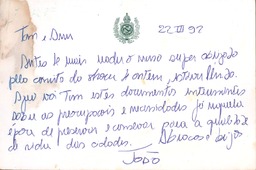 22 III 97
Tom e Ana
Antes de mais nada o nosso super abraço
pelo convite do show de ontem, estava lindo.
Aqui vai Tom estes documentos interessantes
sobre as preocupações e necessidades já naquela
época de preservar e conservar para a qualidade
de vida das cidades. Abraços e beijos
João